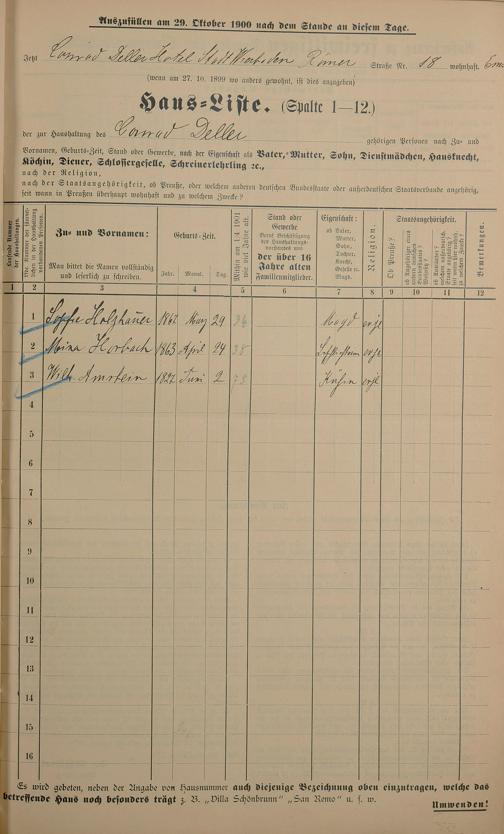 Auszufüllen am 29. Oktober 1900 nach dem Stande an diesem Tage.
Jetzt Conrad Deller Hotel Stadt Wiesbaden Römer Straße Nr. 18 wohnhaft. Ems
(wenn am 27. 10. 1899 wo anders gewohnt, ist dies anzugeben)
Haus-Liste. (Spalte 1—12.)
der zur Haushaltung des Conrad Deller gehörigen Personen nach Zu- und
Vornamen, Geburts-Zeit, Stand oder Gewerbe, nach der Eigenschaft als Vater, Mutter, Sohn, Dienstmädchen, Hausknecht,
Köchin, Diener, Schlossergeselle, Schreinerlehrling ꝛc.,
nach der Religion,
nach der Staatsangehörigkeit, ob Preuße, oder welchem anderen deutschen Bundesstaate oder außerdeutschen Staatsverbande angehörig,
seit wann in Preußen überhaupt wohnhaft und zu welchem Zwecke?
Laufende Nummer der Haushaltungen.
Zu- und Vornamen:
Man bittet die Namen vollständig und leserlich zu schreiben.
Geburts-Zeit.
Jahr. Monat. Tag.
Mithin am 1/4 1901 wie viel Jahre alt.
Stand oder Gewerbe
der über 16 Jahre alten Familienmitglieder.
Eigenschaft:
ob Vater, Mutter, Sohn, Tochter, Knecht, Geselle u. Magd.
Religion.
Staatsangehörigkeit.
Ob Preuße?
Bemerkungen.
1 2 3 4 5 6 7 8 9 10 11 12
1 Holzhäuer 1867 29 Magd
2 Mina Horbach 1863 April 24 38
3 Wilh. Amstein Juni 2
4
5
6
7
8
9
10
11
12
13
14
15
16
Es wird gebeten, neben der Angabe von Hausnummer auch diejenige Bezeichnung oben einzutragen, welche das
betreffende Haus noch besonders trägt z. B. „Villa Schönbrunn" „San Remo" u. s. w.
Umwenden!